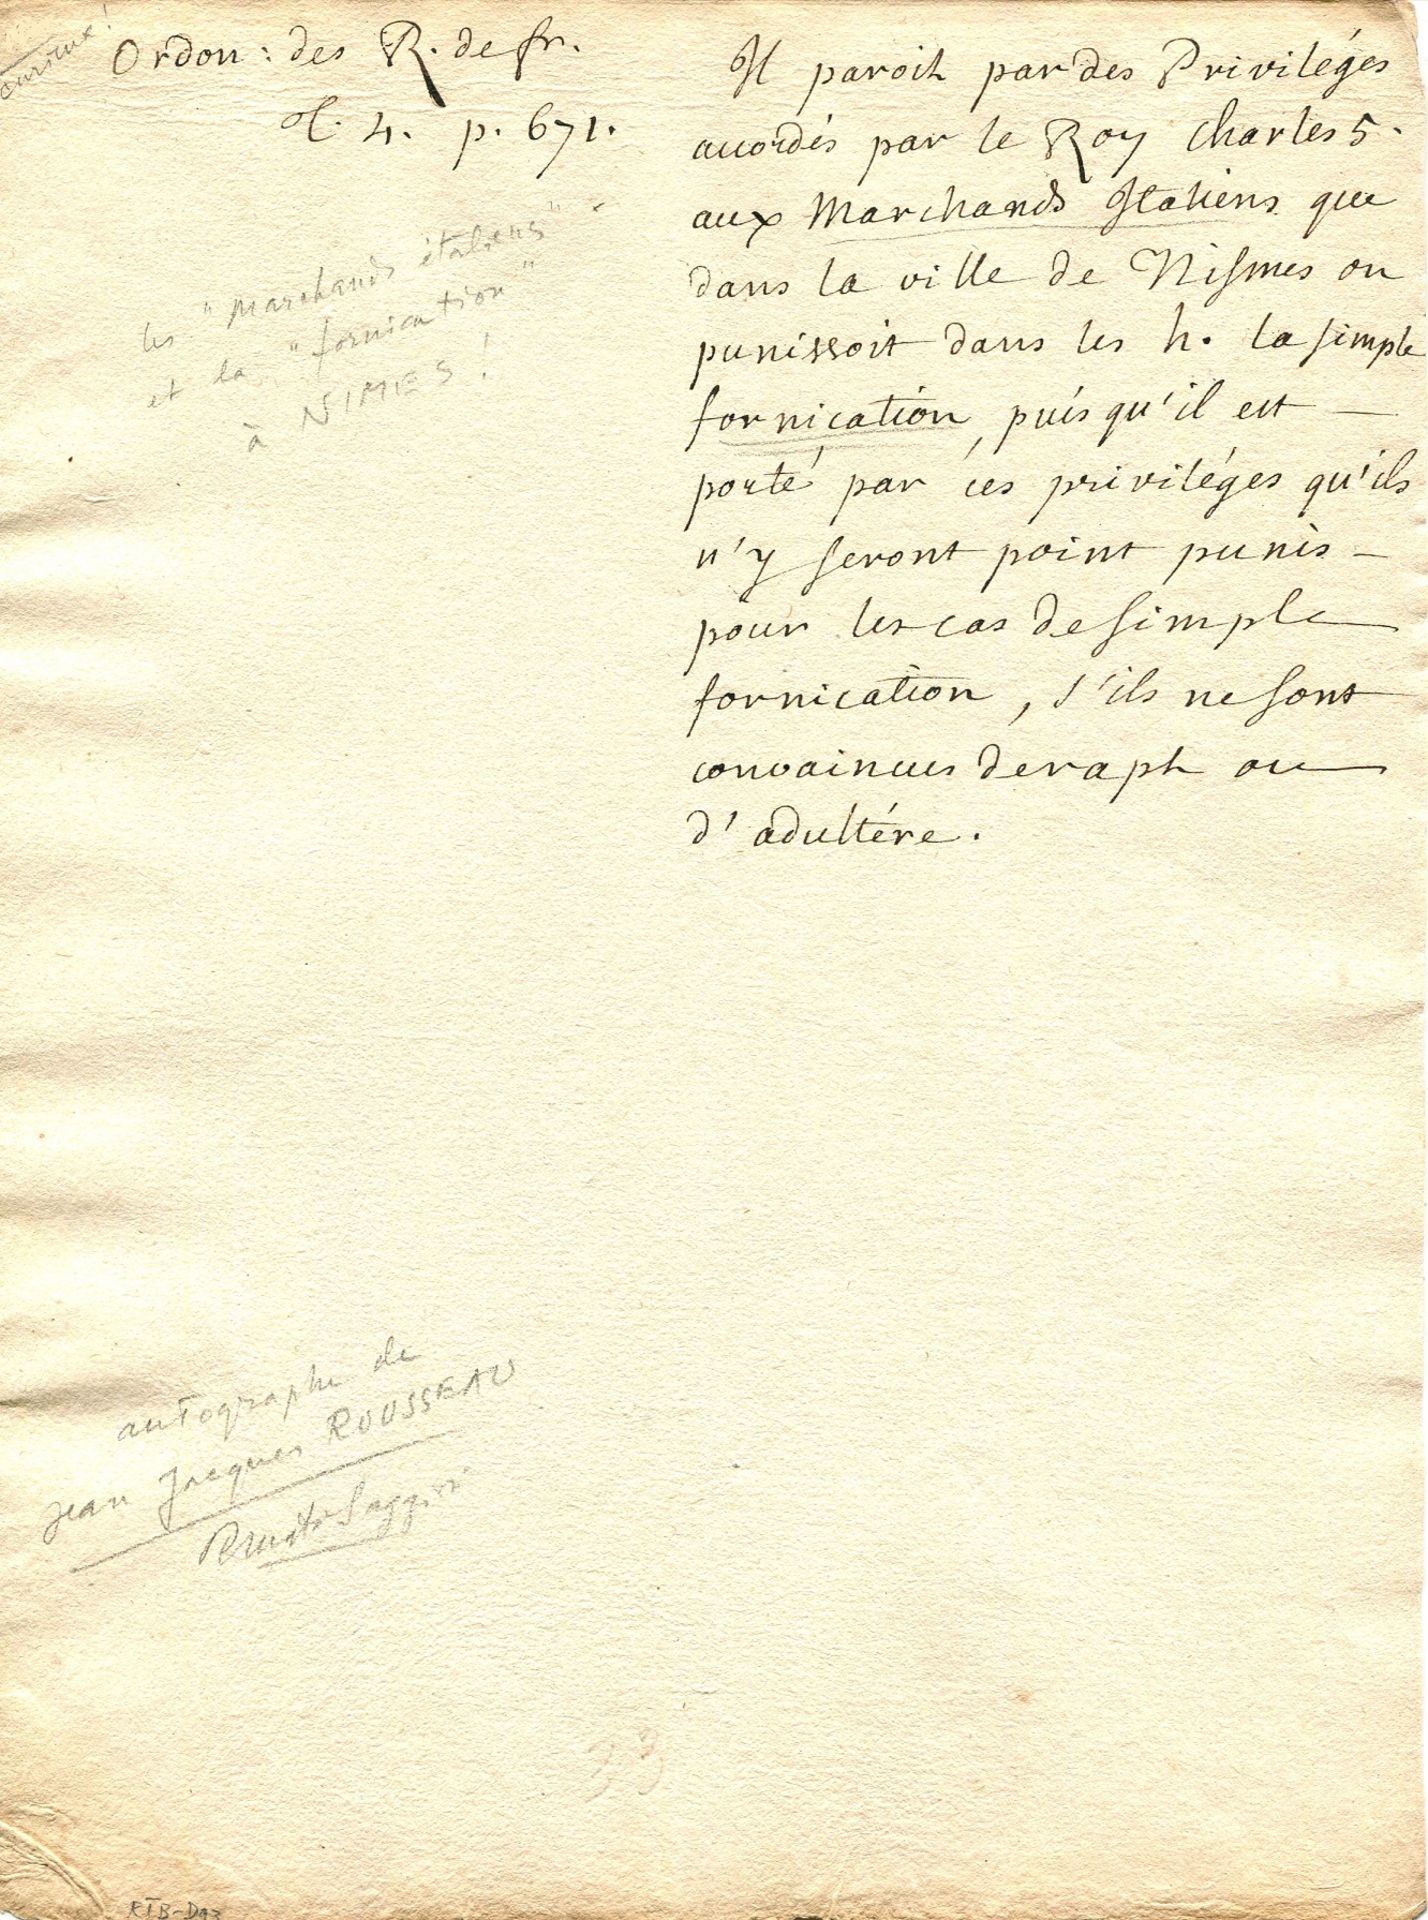 curieux!
Ordon: des R. de fr.
T. 4. p. 671.
les "Marchands italiens"
et la "fornication"
à NIMES!
Il paroit par des Priviléges
acordés par le Roy Charles 5.
aux Marchands Italiens que
dans la ville de Nismes on
punissoit dans les h. la simple
fornication, puisqu'il est —
porté par ces priviléges qu'ils
n'y seront point punis —
pour les cas de simple
fornication, s'ils ne sont
convaincus de rapt ou
d'adultére.
autographe de
Jean Jacques ROUSSEAU
Renato Saggiori
33